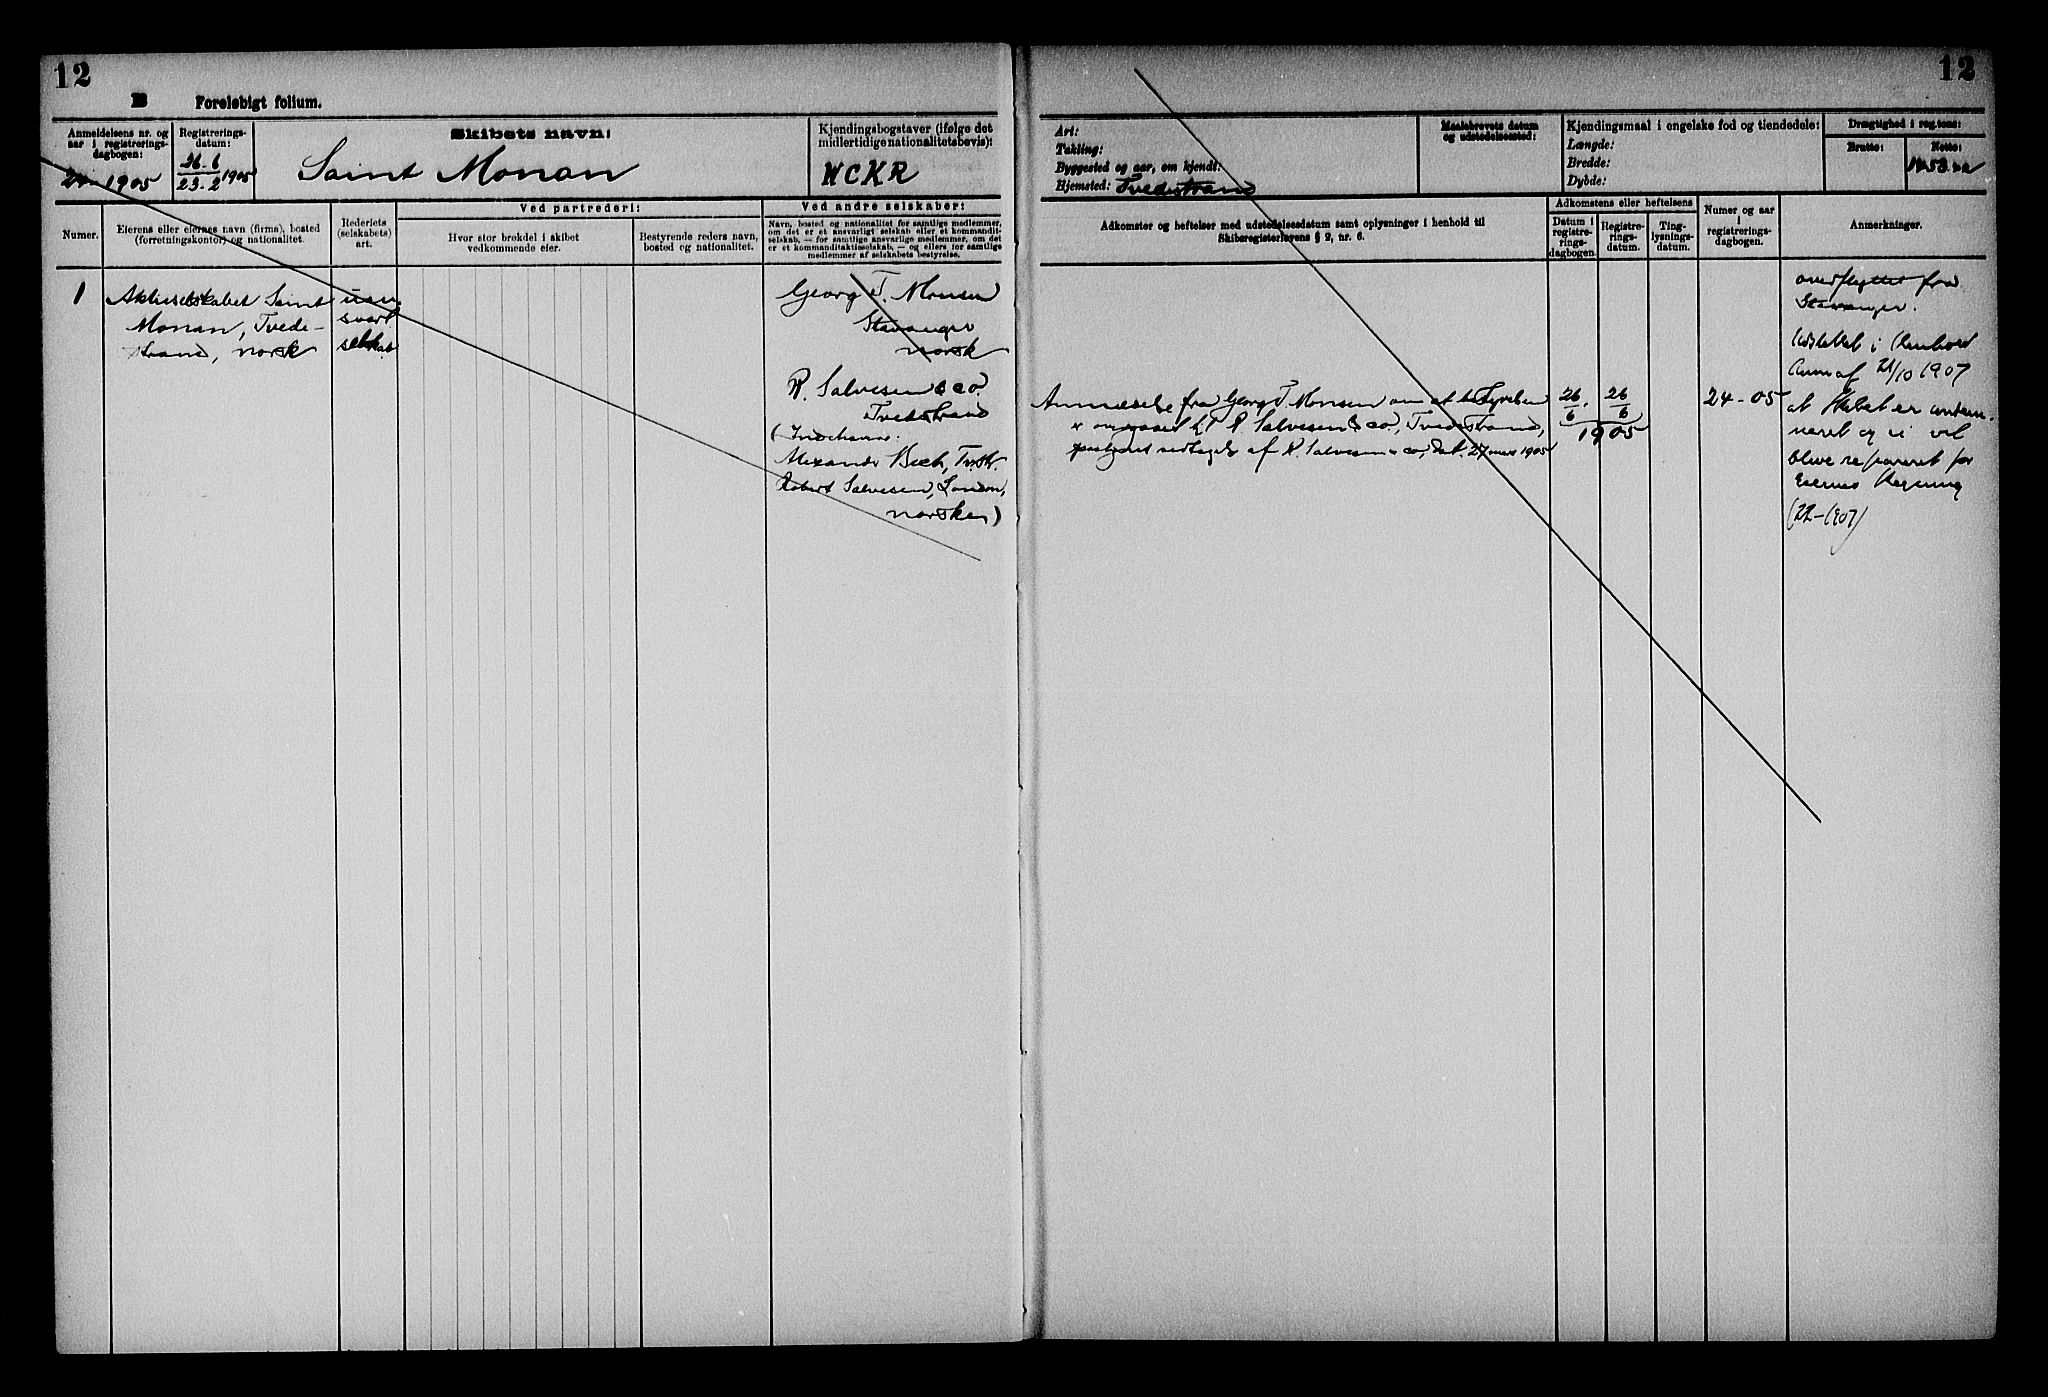 12
B Foreløbigt folium.
Anmeldelsens nr. og
aar i registrerings-
dagbogen:
24 1905
Registrerings-
datum:
26-6
23-2 1905
Skibets navn:
Saint Monan
Kjendingsbogstaver (ifølge det
midlertidige nationalitetsbevis):
HCKR
Numer.
Eierens eller eiernes navn (firma), bosted
(forretningskontor) og nationalitet.
Rederiets
(selskabets)
art.
Ved partrederi:
Hvor stor brøkdel i skibet
vedkommende eier.
Bestyrende reders navn,
bosted og nationalitet.
Ved andre selskaber:
Navn, bosted og nationalitet for samtlige medlemmer,
om det er et ansvarligt selskab eller et kommandit-
selskab, — for samtlige ansvarlige medlemmer, om det
er et kommanditaktieselskab, — og ellers for samtlige
medlemmer af selskabets bestyrelse.
1
Aktieselskabet Saint
Monan, Tvede-
strand, norsk
uan-
svarl.
selskab
Georg T. Monsen
Stavanger
norsk
R. Salvesen & co.
Tvedestrand
(Indehavere:
Alexander Bech, Tvstr.
Robert Salvesen, London,
norske)
12
Art:
Takling:
Byggested og aar, om kjendt:
Hjemsted: Tvedestrand
Maalebrevets datum
og udstedelsessted:
Kjendingsmaal i engelske fod og tiendedele:
Længde:
Bredde:
Dybde:
Drægtighed i reg.tons:
Brutto:
Netto:
Adkomster og heftelser med udstedelsesdatum samt oplysninger i henhold til
Skibsregisterlovens § 2, nr. 6.
Adkomstens eller heftelsens
Datum i
registre-
rings-
dagbogen.
Registre-
rings-
datum.
Ting-
lysnings-
datum.
Numer og aar
i
registrerings-
dagbogen.
Anmerkninger.
Anmeldelse fra Georg T. Monsen om at bestyrelsen
er overgaaet til R. Salvesen & co., Tvedestrand,
af R. Salvesen & co, dat. 27 mars 1905
26/6
26/6
1905
24-05
overflyttet fra
Stavanger.
Udslettet i Henhold
Anm af 21/10 1907
at Skibet er kondem-
neret og ei vil
blive repareret for
Eiernes Regning
(22-1907)